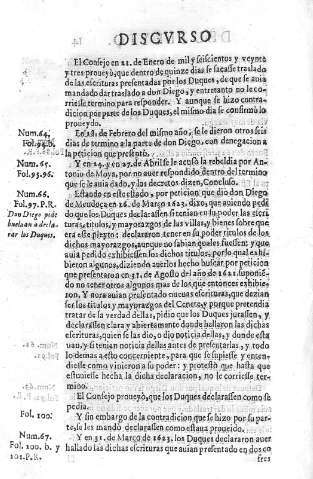 DISCVRSO
El Consejo en 21. de Enero de mil y seiscientos y veynte
y tres proueyò, que dentro de quinze dias se sacasse traslado
de las escrituras presentadas por los Duques, de que se auia
mandado dar traslado a don Diego, y entretanto no le cor-
riesse termino para responder. Y aunque se hizo contra-
dicion por parte de los Duques, el mismo dia se confirmò lo
proueydo.
Num. 64.
Fol. 94. b.
En 28. de Febrero del mismo año, se le dieron otros seis
dias de termino a la parte de don Diego, con denegacion a
la peticion que presentò.
Num. 65.
Fol. 95. 96.
Y en 14. y en 27. de Abril se le acusò la rebeldia por An-
tonio de Moya, por no auer respondido dentro del termino
que se le auia dado, y los decretos dizen, Concluso.
Num. 66.
Fol. 97. P. R.
Don Diego pide
bueluan a decla-
rar los Duques.
Estando en este estado, por peticion que dio don Diego
de Mendoça en 16. de Março de 1623. dixo, que auiendo pedi
do que los Duques declarassen si tenian en su poder las escri-
turas, titulos, y mayorazgos de las villas, y bienes sobre que
era este pleyto: declararon tener en su poder titulos de los
dichos mayorazgos, aunque no sabian quales fuessen: y que
auia pedido exhibiessen los dichos titulos, por lo qual exhi-
bieron algunos, diziendo auerlos hecho buscar por peticion
que presentaron en 31. de Agosto del año de 1621. suponiẽ-
do no tener otros algunos mas de los que entonces exhibie-
ron. Y aora auian presentado cincuenta escrituras, que dezian
ser los titulos y mayorazgos del Correo: y porque pretendia
tratar de la verdad dellas, pidio que los Duques jurassen, y
declarassen clara y abiertamente donde hallaron las dichas
escrituras, quien se las dio, o dio noticia dellas, y donde esta
uan, y si tenian noticia dellas antes de presentarlas, y todo
lo demas a esto concerniente, para que se supiesse y enten-
diesse como vinieron a su poder: y protestò que hasta que
estuuiesse hecha la dicha declaracion, no le corriesse ter-
mino.
El Consejo proueyò, que los Duques declarassen como se
pedia.
Fol. 100.
Y sin embargo de la contradicion que se hizo por su par-
te, se les mandò declarassen como estaua proueido.
Num. 67.
Fol. 100. b. y
101. P. R.
Y en 31. de Março de 1623. los Duques declararon auer
hallado las dichas escrituras que auian presentado en dos co
fres